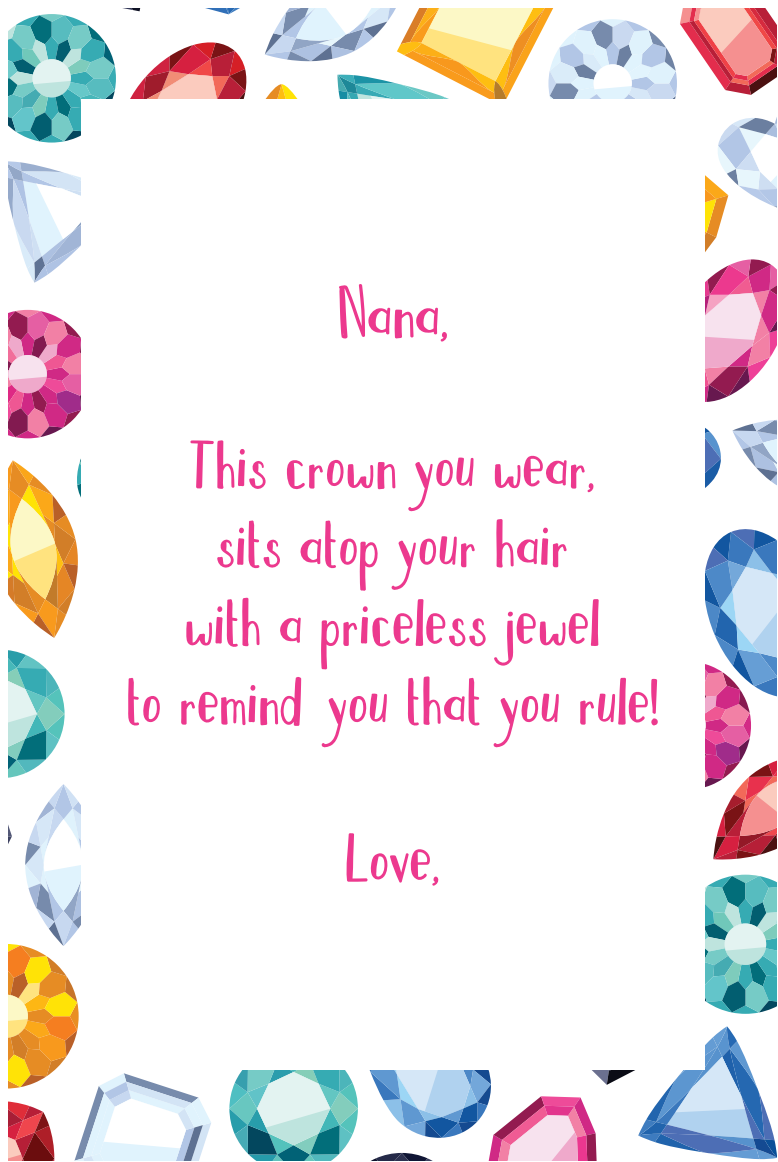 Nana,
This crown you wear,
sits atop your hair
with a priceless jewel
to remind you that you rule!
Love,